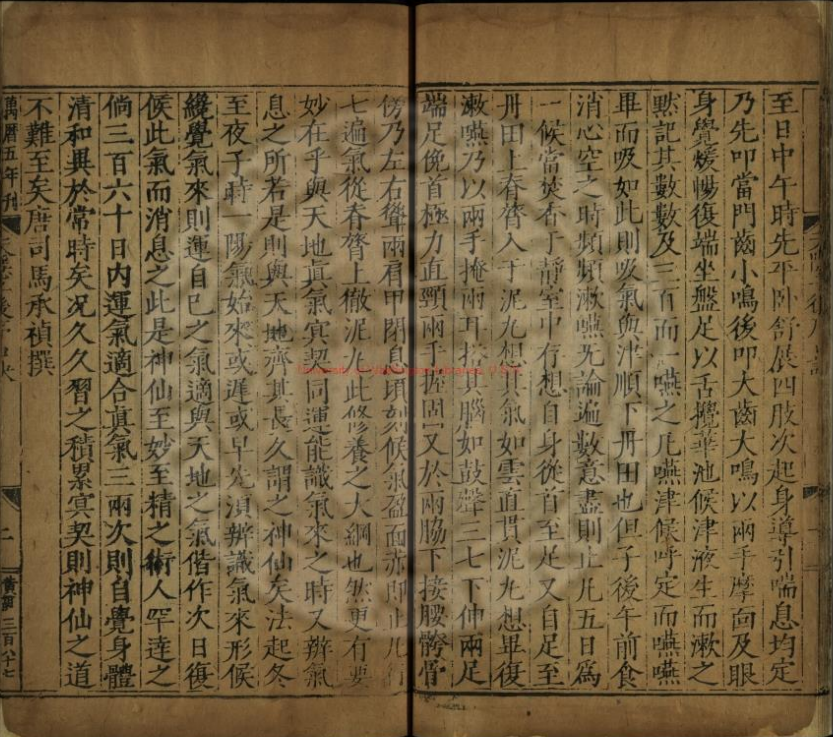 至日中午時先平卧舒展四肢次起身導引喘息均定
乃先叩當門齒小鳴後叩大齒大鳴以兩手摩面及眼
身覺煖暢復端坐盤足以舌攪華池候津液生而漱之
黙記其數數及三百而一嚥之凡嚥津候呼定而嚥嚥
畢而吸如此則吸氣與津順下丹田也但子後午前食
消心空之時頻頻漱嚥无論遍數意盡則止凡五日為
一候當焚香于靜室中存想自身從首至足又自足至
丹田上脊膂入于泥丸想其氣如雲直貫泥丸想畢復
漱嚥乃以兩手掩兩耳搭其腦如鼓聲三七下伸兩足
端足俛首極力直頸兩手握固又於兩脇下接腰胯骨
傍乃左右聳兩肩甲閉息頃刻候氣盈面赤即止凡行
七遍氣從脊膂上徹泥丸此修養之大綱也然更有要
妙在乎與天地眞氣宾契同運能識氣來之時又辨氣
息之所若是則與天地齊其長久謂之神仙矣法起冬
至夜子時一陽氣始來或遲或早先須辨識氣來形候
纔覺氣來則運自已之氣適與天地之氣偕作次日復
候此氣而消息之此是神仙至妙至精之術人罕達之
倘三百六十日内運氣適合眞氣三兩次則自覺身體
清和異於常時矣况久久習之積累宾契則神仙之道
不難至矣唐司馬承禎撰
萬曆五年刊
二
三百八十七